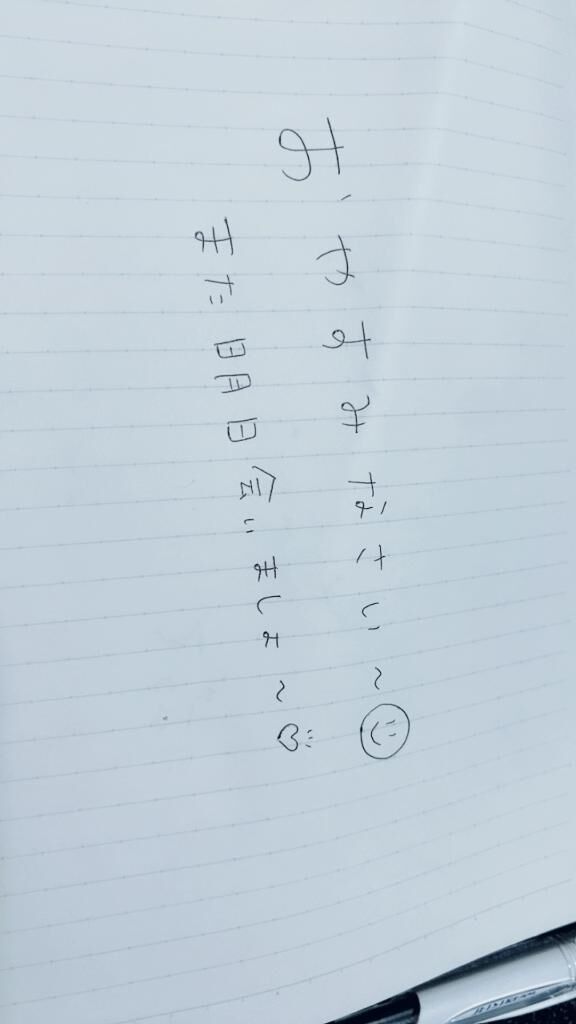 おやすみなさい〜
また明日会いましょ〜